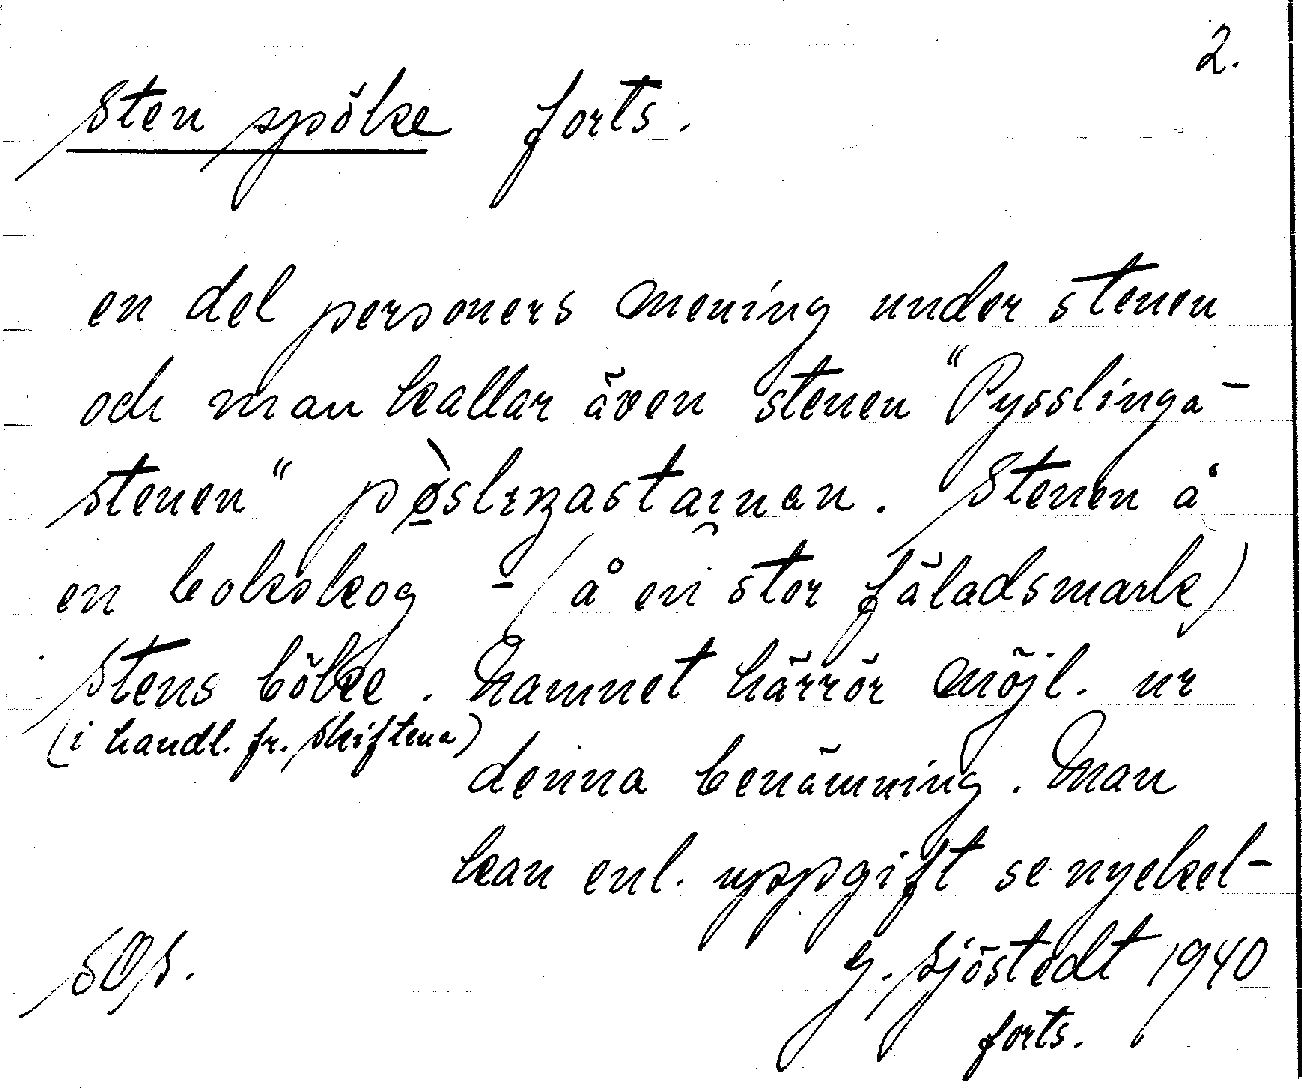 2.
Sten spöke forts.
en del personers mening under stenen
och man kallar även stenen "Pysslinga-
stenen" pø̀slıŋastaı̯nan. Stenen å
en bokskog - (å en stor fäladsmark)
Stens böke. Namnet härrör möjl. ur
(i handl. fr. skiftena)
denna benämning. Man
kan enl. uppgift se nyckel-
SOs.
G. Sjöstedt 1940
forts.